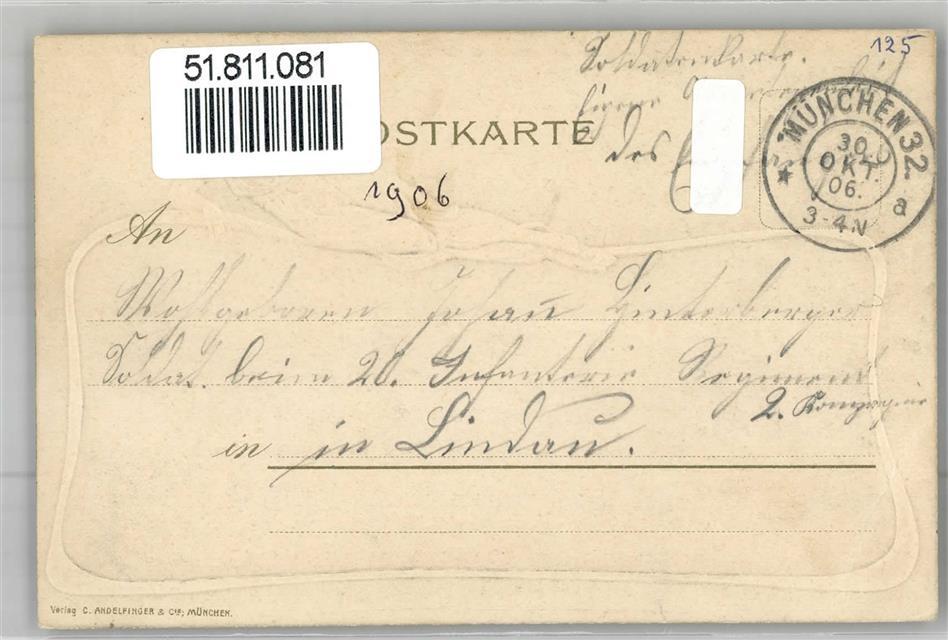 125
51.811.081
Soldatenkarte.
OSTKARTE
des
MÜNCHEN 32.
30.
OKT.
06.
3-4N
a
1906
An
Wohlgeboren Johann Hinterberger
Soldat beim 20. Infanterie Regiment
2. Kompagnie
in in Lindau.
Verlag C. ANDELFINGER & Cie; MÜNCHEN.